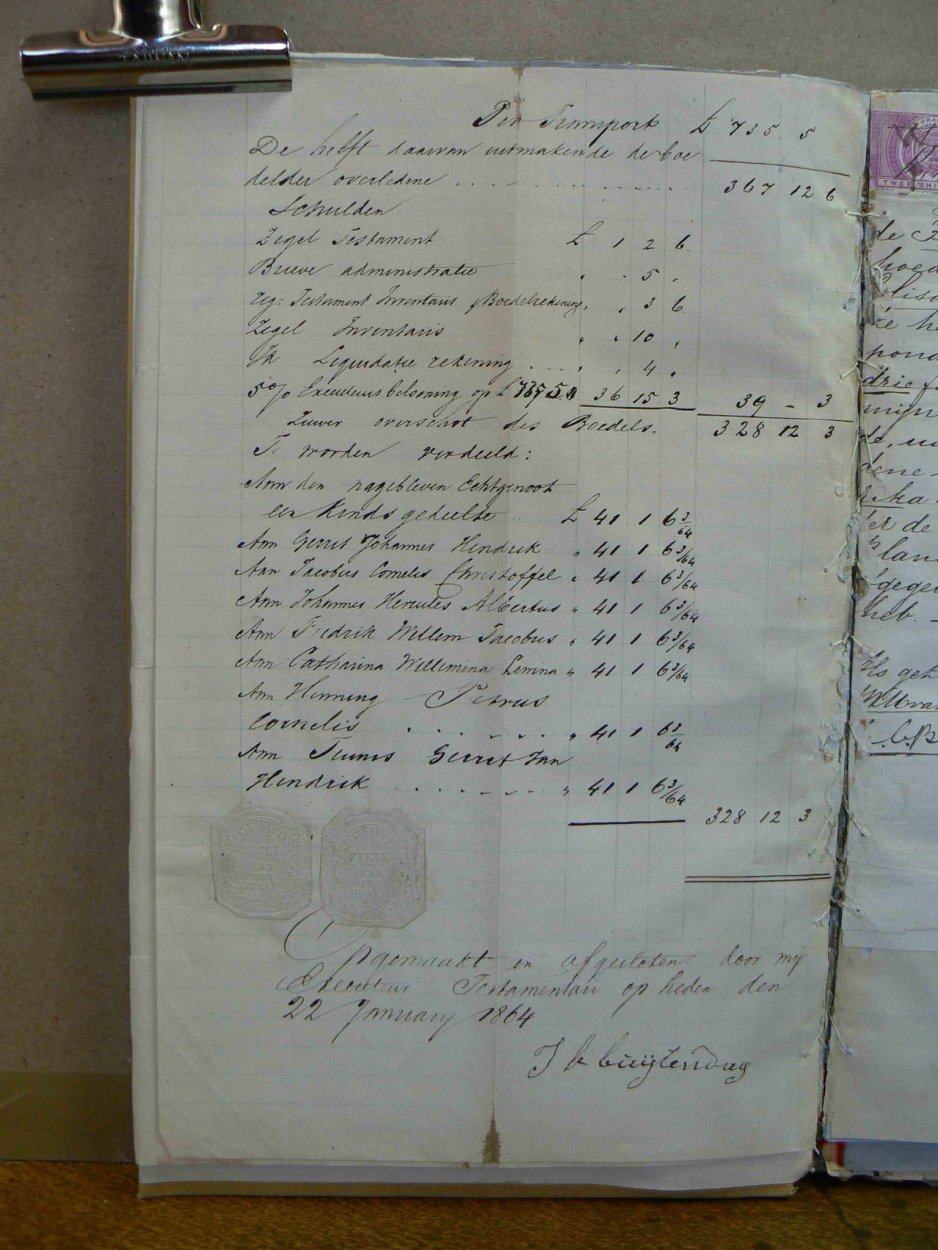 Per Transport £ 735 5
De helft daarvan uitmakende de boe
delder overledene 367 12 6
Schulden
Zegel Testament £ 1 2 6
Brieve administratie " . 5 ,
reg: Testament Inventaris & Boedelrekening " , 3 6
Zegel Inventaris " , 10 ,
Liquidatie rekening , 4 ,
5% Executeurs belooning op £ 735 5 36 15 3 39 - 3
Zuiver overschot des Boedels. 328 12 3
Te worden verdeeld:
Aan den nagebleven Echtgenoot
een Kinds gedeelte £ 41 1 6 3/64
Aan Gerrit Johannes Hendrik " 41 1 6 3/64
Aan Jacobus Cornelis Christoffel " 41 1 6 3/64
Aan Johannes Hercules Albertus " 41 1 6 3/64
Aan Fredrik Willem Jacobus " 41 1 6 3/64
Aan Catharina Willemina Levina " 41 1 6 3/64
Aan Henning Petrus
Cornelis " 41 1 6 3/64
Aan Teunis Gerrit Jan
Hendrik " 41 1 6 3/64
328 12 3
ZEGEL
ZEGEL
Opgemaakt en afgesloten door mij
Executeur Testamentair op heden den
22 January 1864